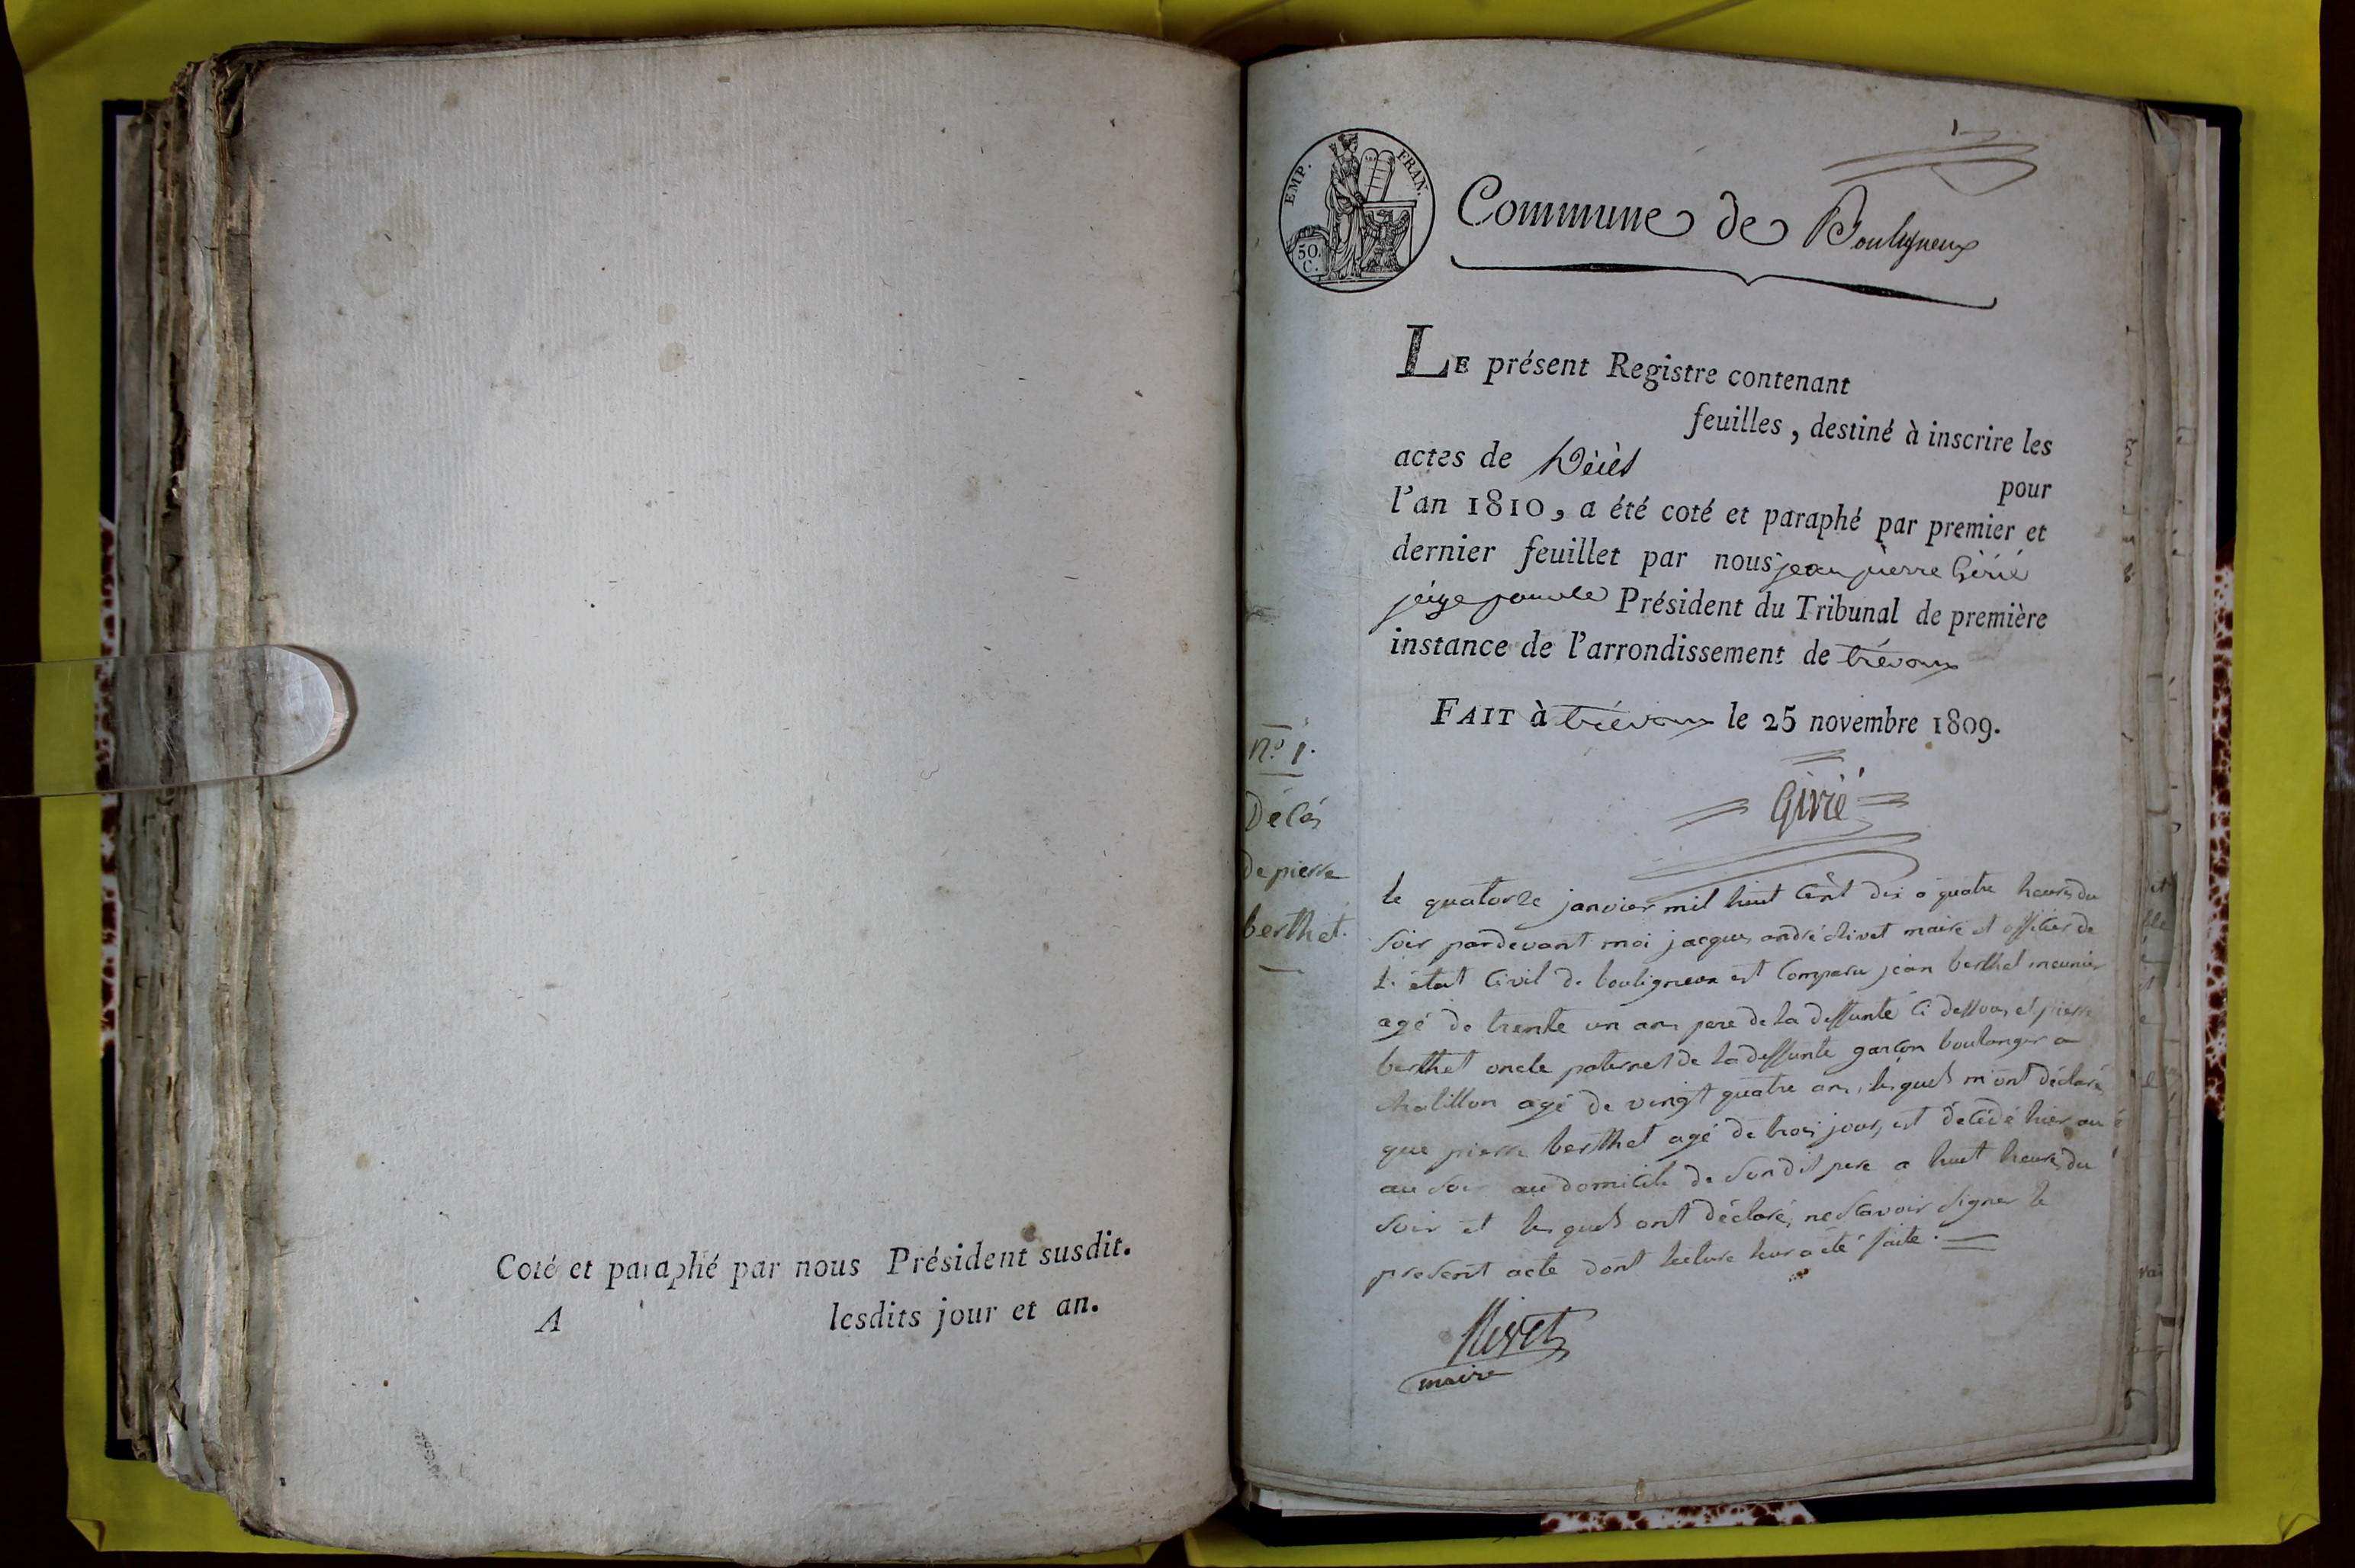 Coté et paraphé par nous Président susdit.
A lesdits jour et an.
EMP. FRAN.
50.
C.
Commune de Bouligneux
LE présent Registre contenant
feuilles, destiné à inscrire les
actes de Décès
pour
l'an 1810, a été coté et paraphé par premier et
dernier feuillet par nous jean pierre Girié
juge pour le Président du Tribunal de première
instance de l'arrondissement de trévoux
FAIT à trévoux le 25 novembre 1809.
Girié
n.º 1.
Décés
de pierre
berthet.
le quatorze janvier mil huit cent dix a quatre heures du
soir pardevant moi jacques andré nivet maire et officier de
l'état civil de bouligneux est comparu jean berthet meunier
agé de trente un ans pere de la deffunte ci dessous et pierre
berthet oncle paternel de la deffunte garçon boulanger a
chatillon agé de vingt quatre ans, lesquels m'ont déclaré
que pierre berthet agé de trois jours, est décédé hier au
au soir au domicile de sondit pere a huit heures du
soir et lesquels ont déclaré, ne scavoir signer le
present acte dont lecture leur a été faite.
Nivet
maire